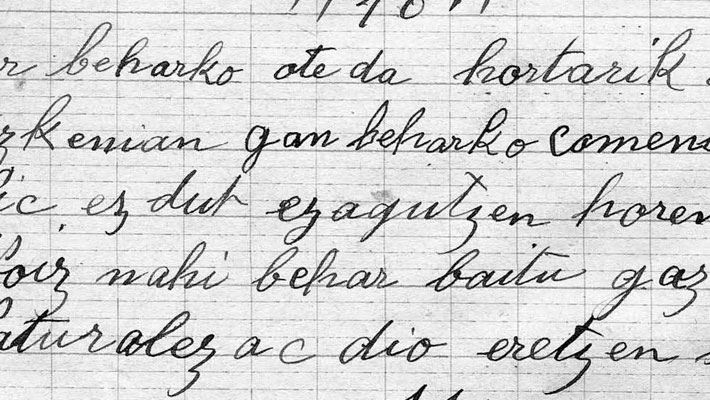 r beharko ote da hortarik
zkenian gan beharko comeni
ic ez dut ezagutzen horen
oiz nahi behar baitu gaz
aturalezac dio eretzen